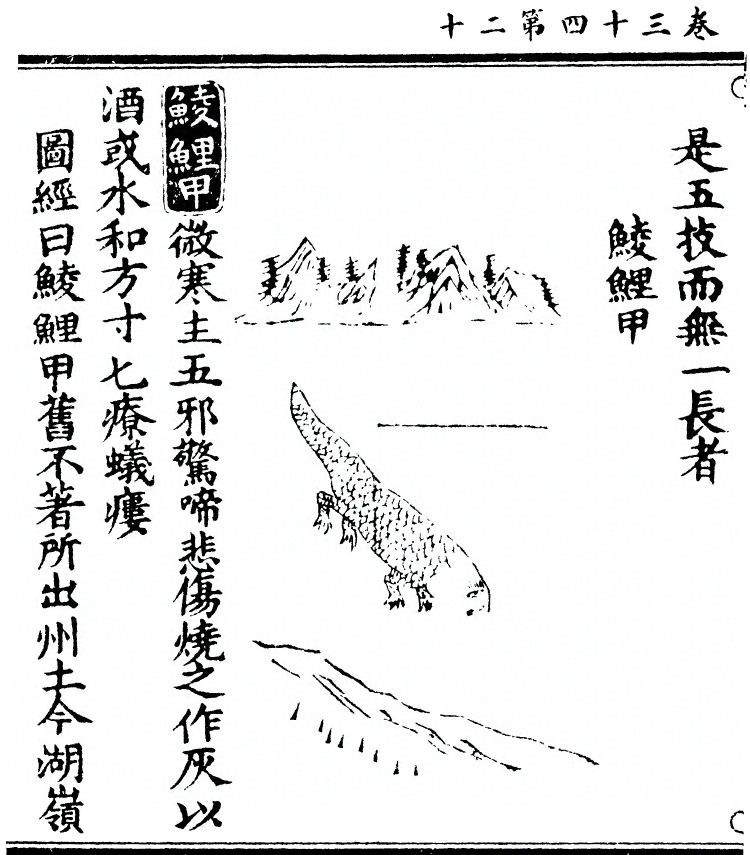 卷三十四第二十
是五技而無一長者
鯪鯉甲
鯪鯉甲微寒主五邪驚啼悲傷燒之作灰以
酒或水和方寸匕療蟻瘻
圖經曰鯪鯉甲舊不著所出州土今湖嶺